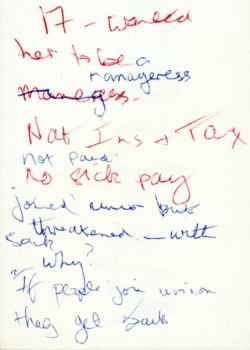 17 - wanted
her to be a
manageress
Nat Ins & Tax
not paid.
No sick pay
joined union but
threatened - with
sack
Why?
"If people join union
they get sack